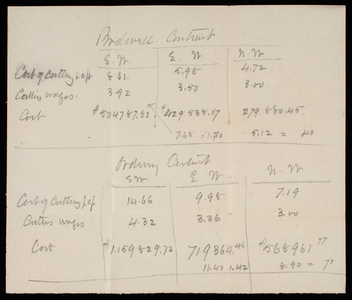 Bodwell Contract
S. W. E. W. N. W.
Cost of Cutting p. c.f. 8.61. 5.98 4.72
Cutters wages. 3.92 3.50 3.00
Cost $504787.52 $429538.17 279880.45
7.68 = 1.70 5.12 = 40
Ordinary Contract
S W E W N. W.
Cost of Cutting p c f 14.66 9.98 7.19
Cutters wages 4.32 3.36 3.00
Cost $1.159829.72 719364.46 $568961.77
11.40 1.42 8.90 = 71